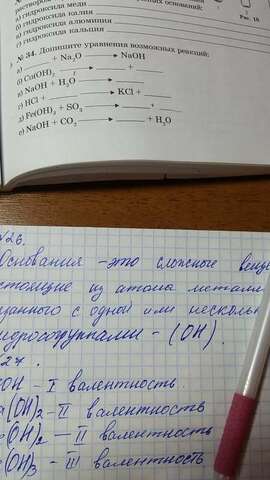 раствором
а) гидроксида меди
б) гидроксида калия
в) гидроксида алюминия
г) гидроксида кальция
Рис. 10
№ 34. Допишите уравнения возможных реакций:
а) ____ + Na₂O ⟶ NaOH
б) Co(OH)₂ t⟶ ____ + ____
в) NaOH + H₂O ⟶ ____
г) HCl + ____ ⟶ KCl + ____
д) Fe(OH)₂ + SO₃ ⟶ ____ + ____
е) NaOH + CO₂ ⟶ ____ + H₂O
№26.
Основания - это сложные веще
стоящие из атома металл
занного с одной или нескольк
идроксогруппами - (OH).
27.
OH - I валентность.
(OH)2 - II валентность
(OH)2 - II валентность
(OH)3 - III валентность